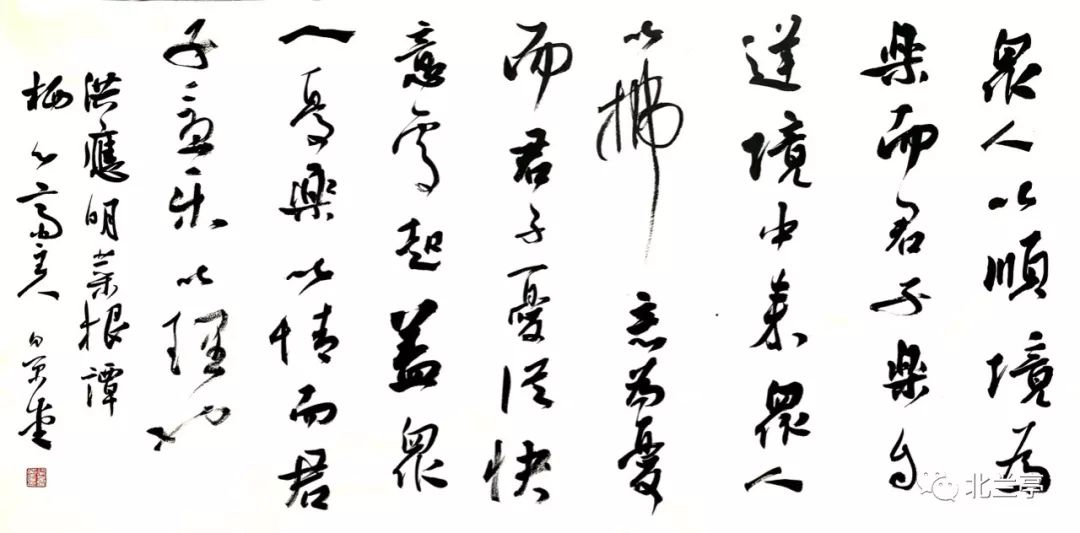 眾人以順境為
樂而君子樂自
逆境中來眾人
以拂意為憂
而君子憂從快
意處起蓋眾
人憂樂以情而君
子憂乐以理也
洪應明菜根譚
栖心齋主人
北兰亭